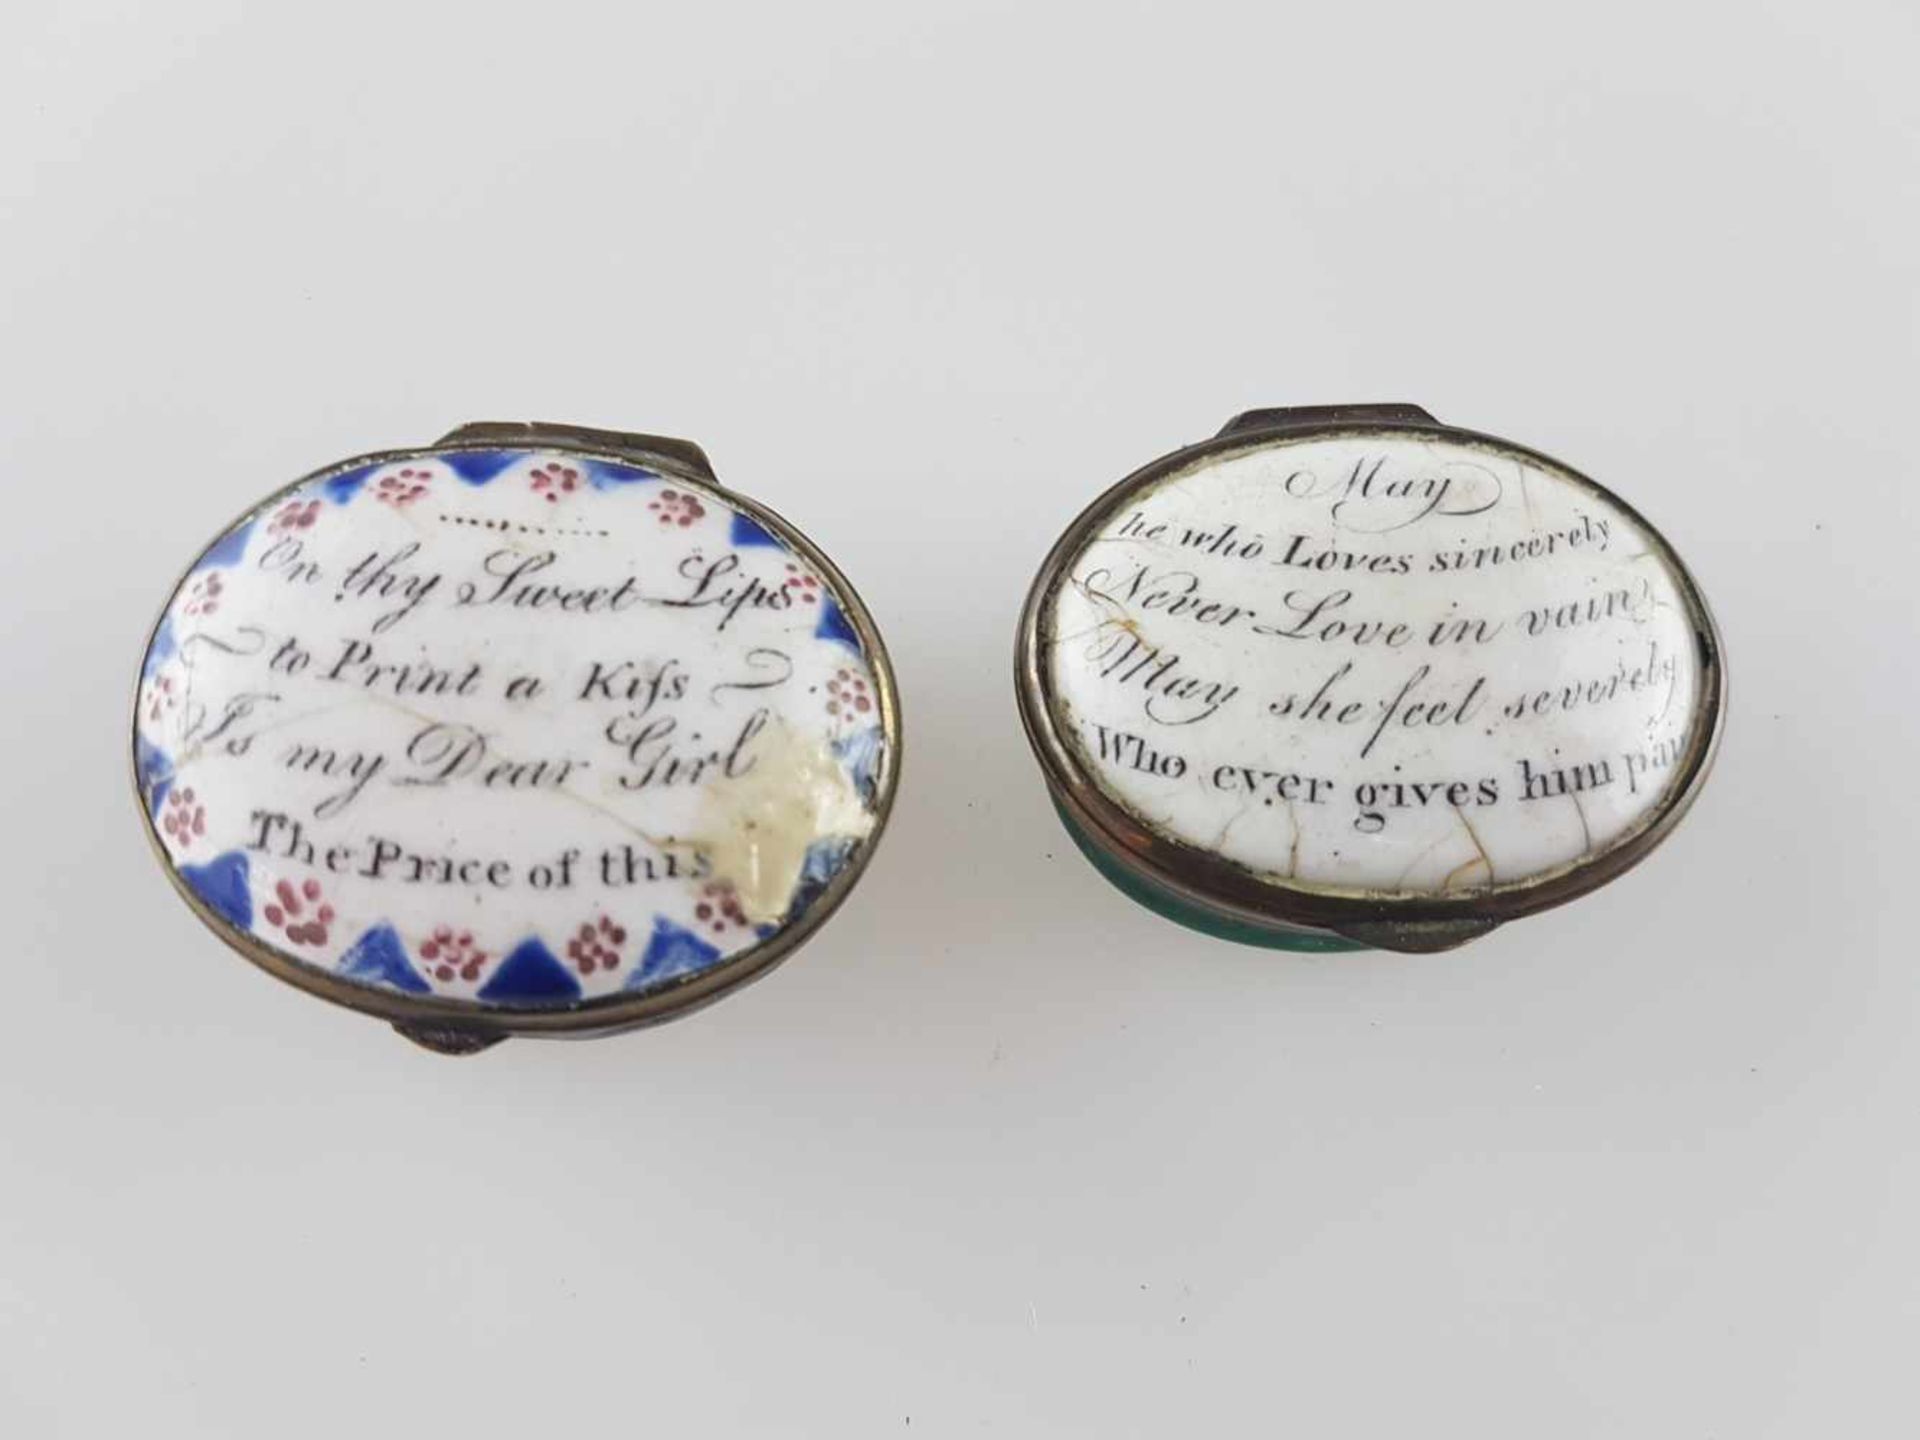 On thy Sweet Lips
to Print a Kiſs
Is my Dear Girl
The Price of this
May
he who Loves sincerely
Never Love in vain
May she feel severely
Who ever gives him pain